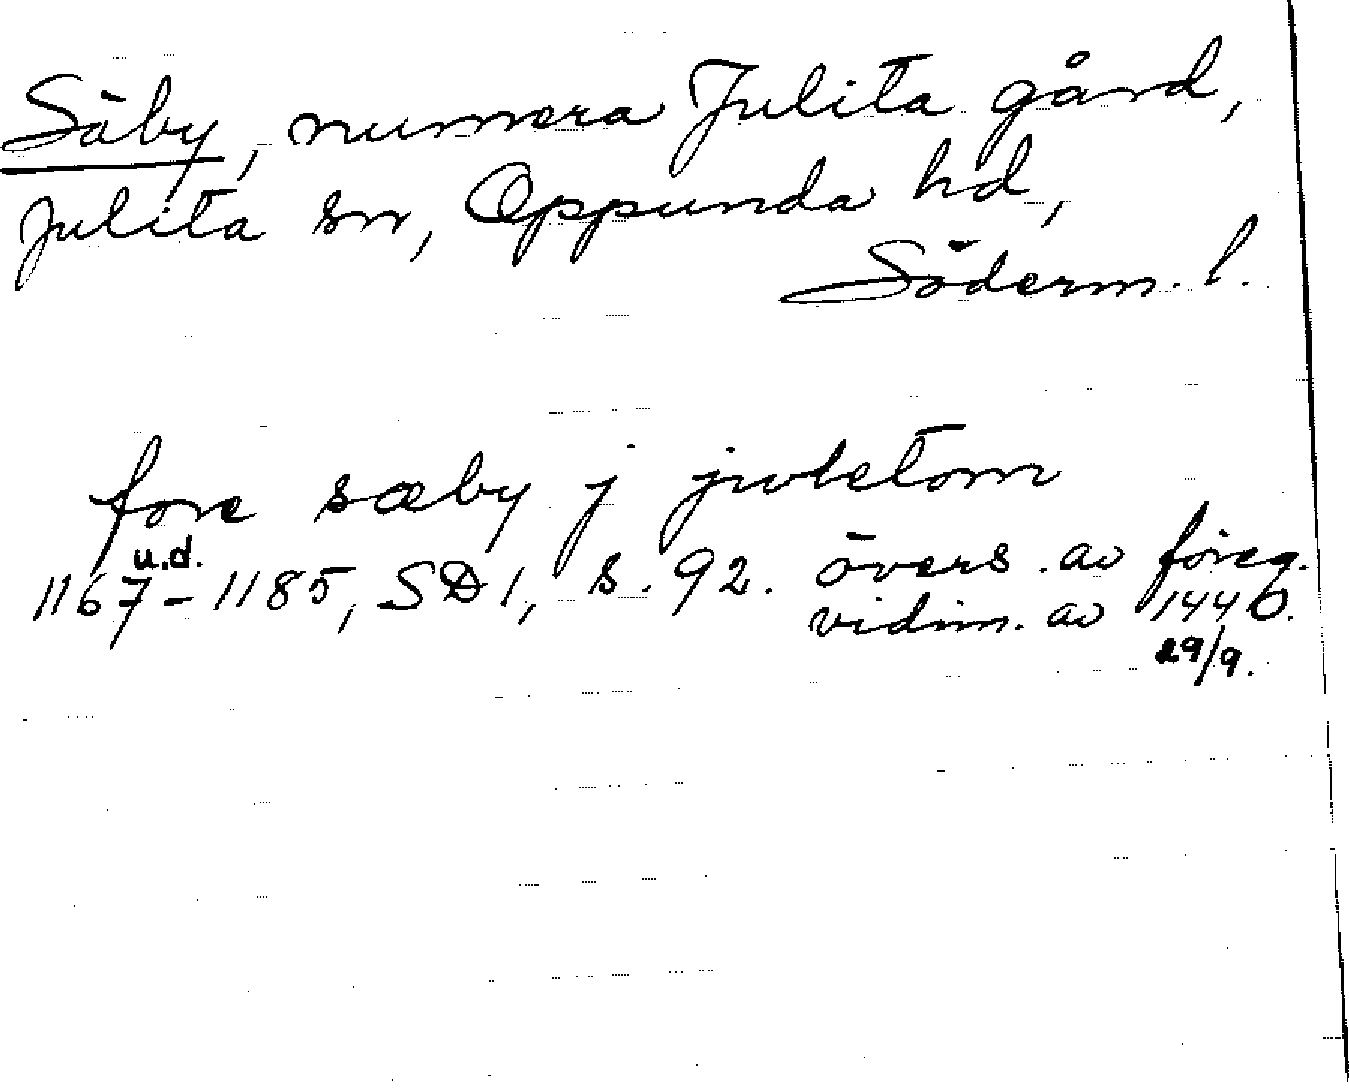 Säby, numera Julita gård,
Julita sn, Oppunda hd,
Söderm. l.
fore sæby j juletom
u.d.
1167-1185, SD 1, s. 92. övers. av föreg.
vidim. av 1440.
29/9.